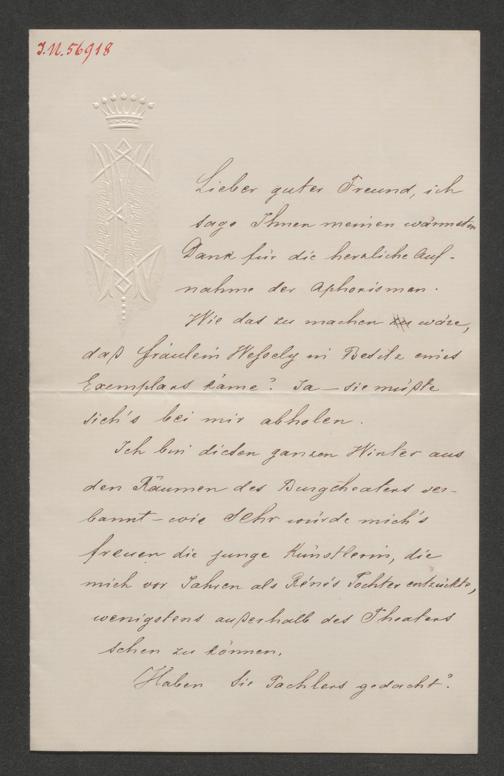 J.N. 56918
Lieber guter Freund, ich
sage Ihnen meinen wärmsten
Dank für die herzliche Auf-
nahme der Aphorismen.
Wie das zu machen wäre,
daß Fräulein Weßely in Besitz eines
Exemplars käme? Ja – sie müßte
sich's bei mir abholen.
Ich bin diesen ganzen Winter aus
den Räumen des Burgtheaters ver-
bannt – wie sehr würde mich's
freuen die junge Künstlerin, die
mich vor Jahren als Réné's Tochter entzückte,
wenigstens außerhalb des Theaters
sehen zu können.
Haben Sie Fachlers gedacht?